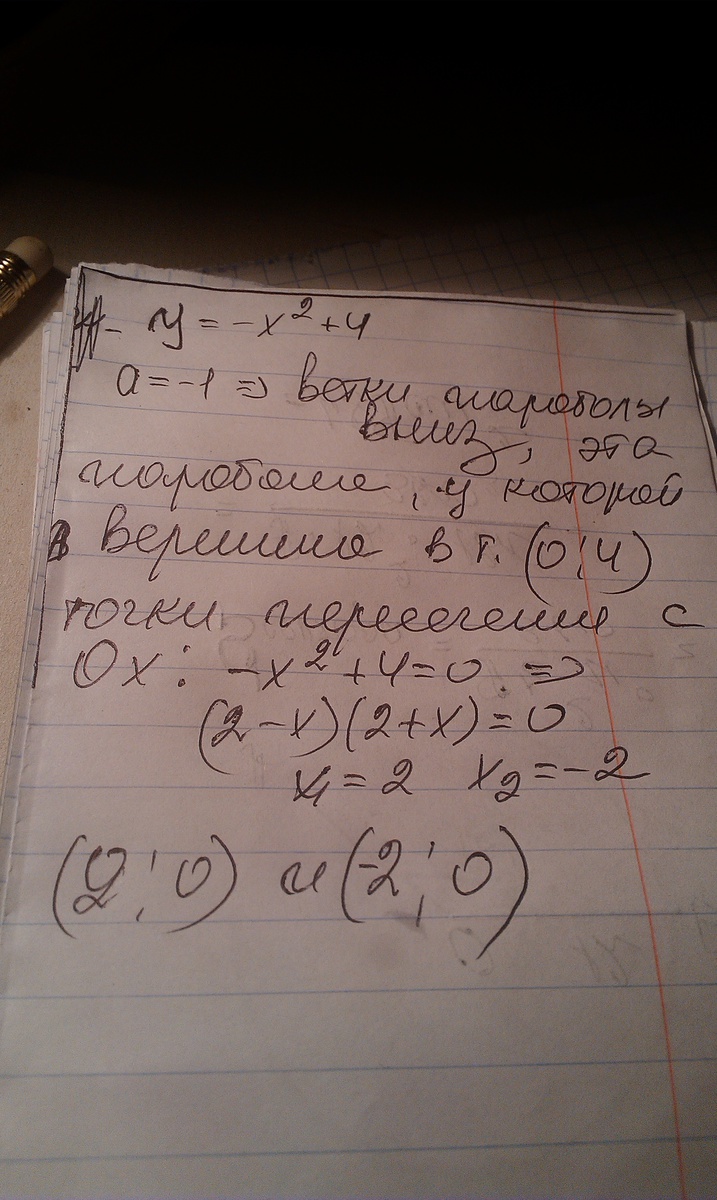 y = -x² + 4
a = -1 => ветки параболы
вниз, эта
парабола, у которой
вершина в т. (0; 4)
точки пересечения с
Ox: -x² + 4 = 0 =>
(2 - x)(2 + x) = 0
x₁ = 2 x₂ = -2
(2; 0) и (-2; 0)